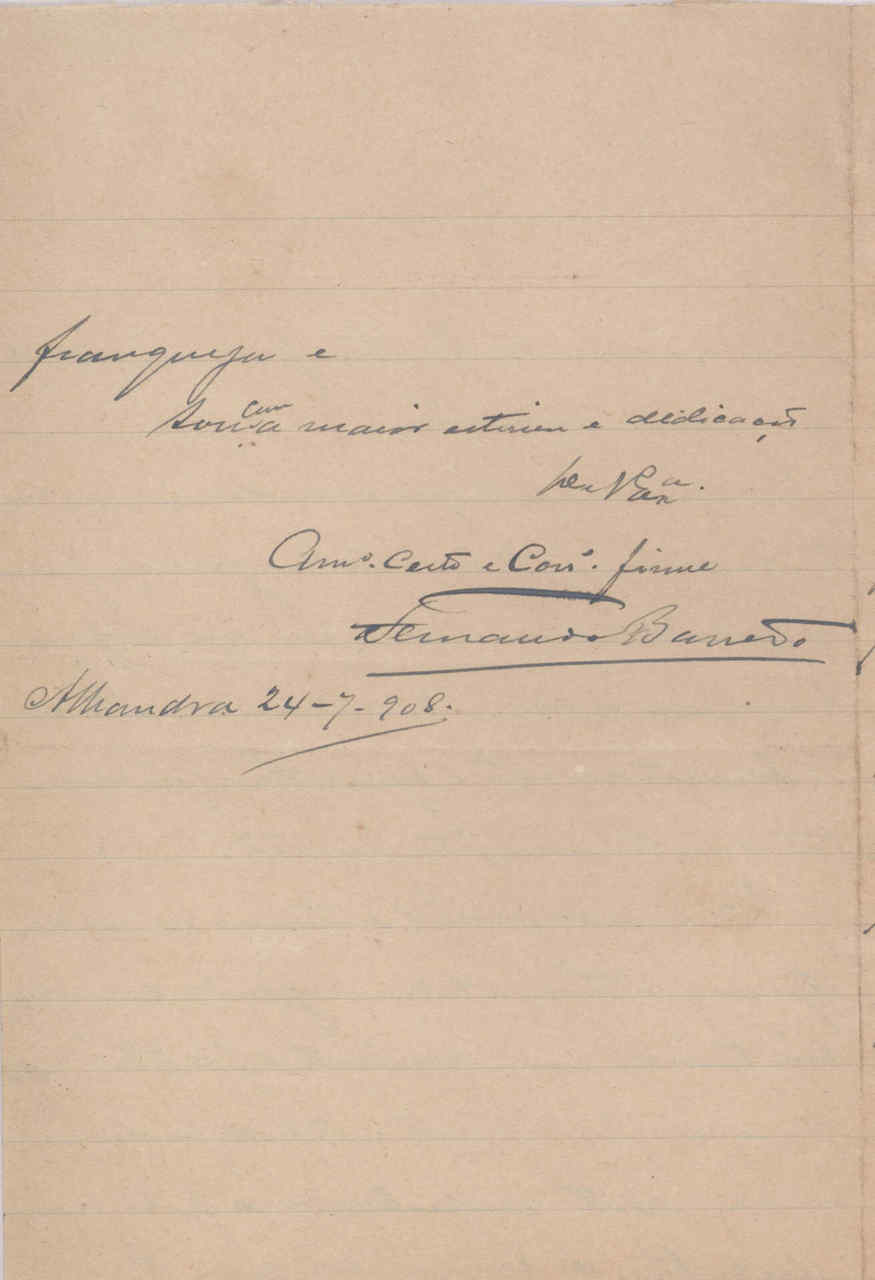 franqueza e
sou com a maior estima e dedicação
De V. Ex.ª
Am.º Certo e Corr.º firme
Fernando Barreto
Alhandra 24-7-908.